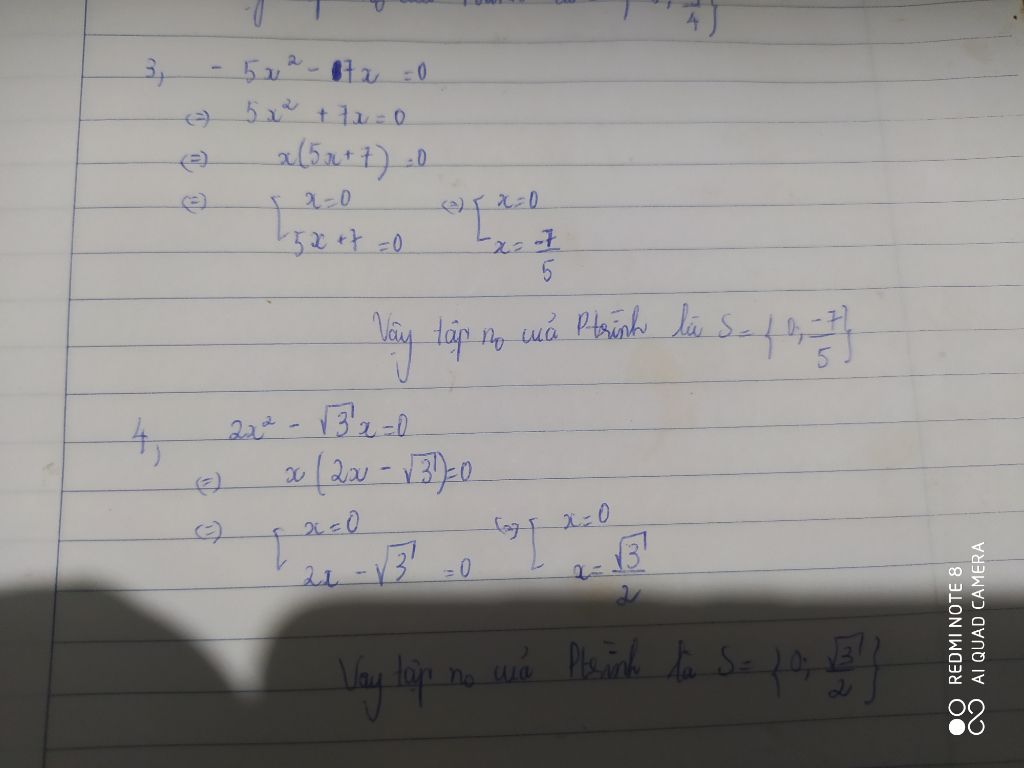 4}
3, - 5x² - 7x = 0
(=) 5x² + 7x = 0
(=) x(5x+7) = 0
(=) [ x=0 (=) [ x=0
5x+7 =0 x= -7/5
Vậy tập n₀ cuả Ptrình là S = {0; -7/5}
4, 2x² - √3 x = 0
(=) x(2x - √3) = 0
(=) [ x=0 (=) [ x=0
2x - √3 = 0 x= √3/2
Vậy tập n₀ cuả Ptrình là S = {0; √3/2}
REDMI NOTE 8
AI QUAD CAMERA